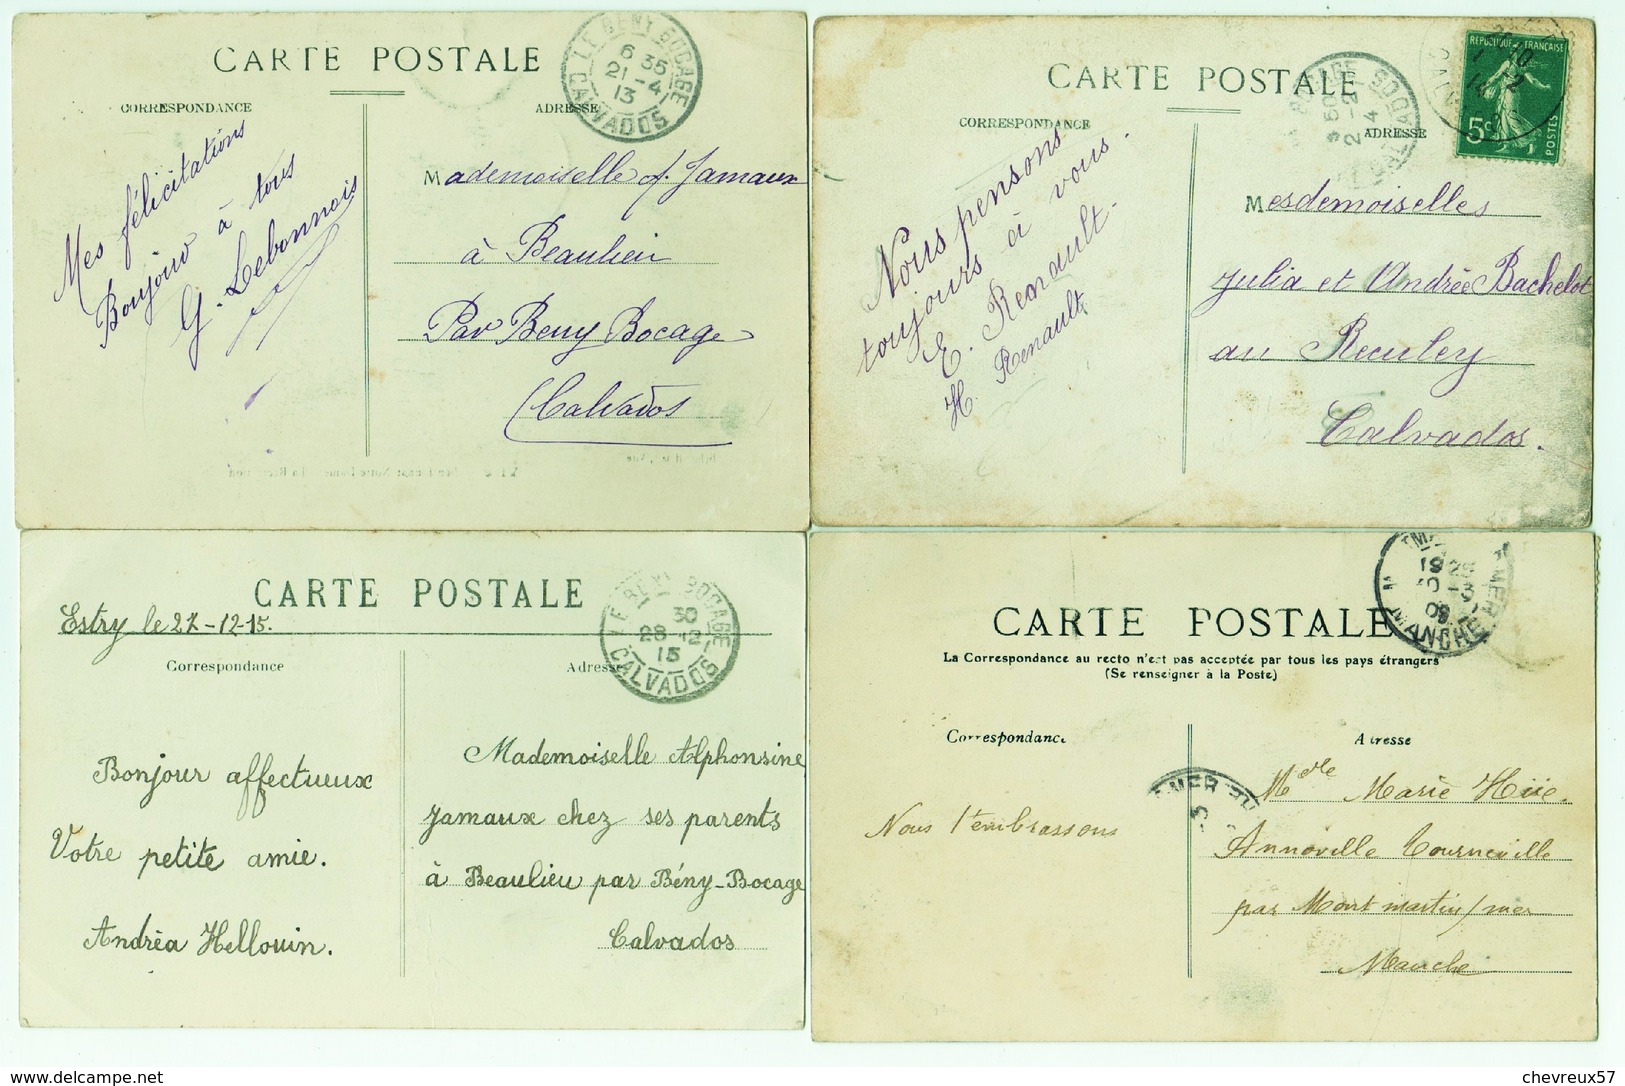 CARTE POSTALE
CORRESPONDANCE
ADRESSE
LE BENY BOCAGE
6 35
21 - 4
13
CALVADOS
Mes félicitations
Bonjour à tous
G. Lebonnois
Mademoiselle A. Jamaux
à Beaulieu
Par Beny Bocage
Calvados
CARTE POSTALE
CORRESPONDANCE
ADRESSE
REPUBLIQUE FRANÇAISE
5c
POSTES
Nous pensons
toujours à vous.
E. Renault.
H. Renault
Mesdemoiselles
Julia et Andrée Bachelot
au Reculey
Calvados.
CARTE POSTALE
Estry le 27-12-15.
Correspondance
Adresse
LE BENY BOCAGE
30
28 12
15
CALVADOS
Bonjour affectueux
Votre petite amie.
Andrèa Hellouin.
Mademoiselle Alphonsine
Jamaux chez ses parents
à Beaulieu par Bény-Bocage
Calvados
CARTE POSTALE
La Correspondance au recto n'est pas acceptée par tous les pays étrangers
(Se renseigner à la Poste)
Correspondance
Adresse
MANCHE
09
Nous t'embrassons
Melle Marie Hüe.
Annoville Tourneville
par Montmartin/mer
Manche
delcampe.net
chevreux57